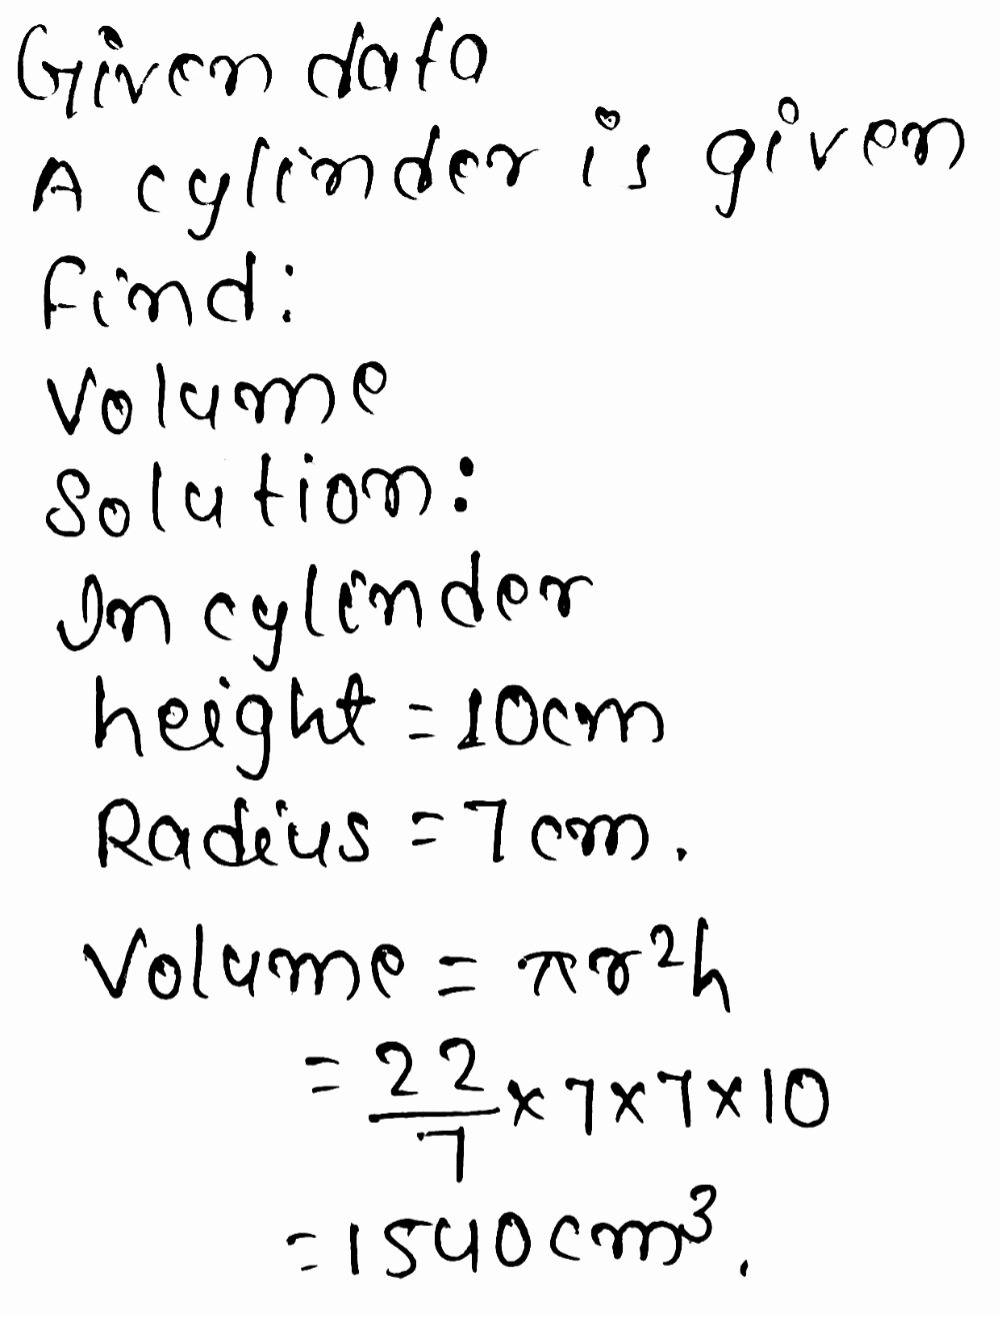 Given data
A cylinder is given
Find:
Volume
Solution:
In cylinder
height = 10cm
Radius = 7cm.
Volume = πr²h
= 22/7 × 7 × 7 × 10
= 1540cm³.